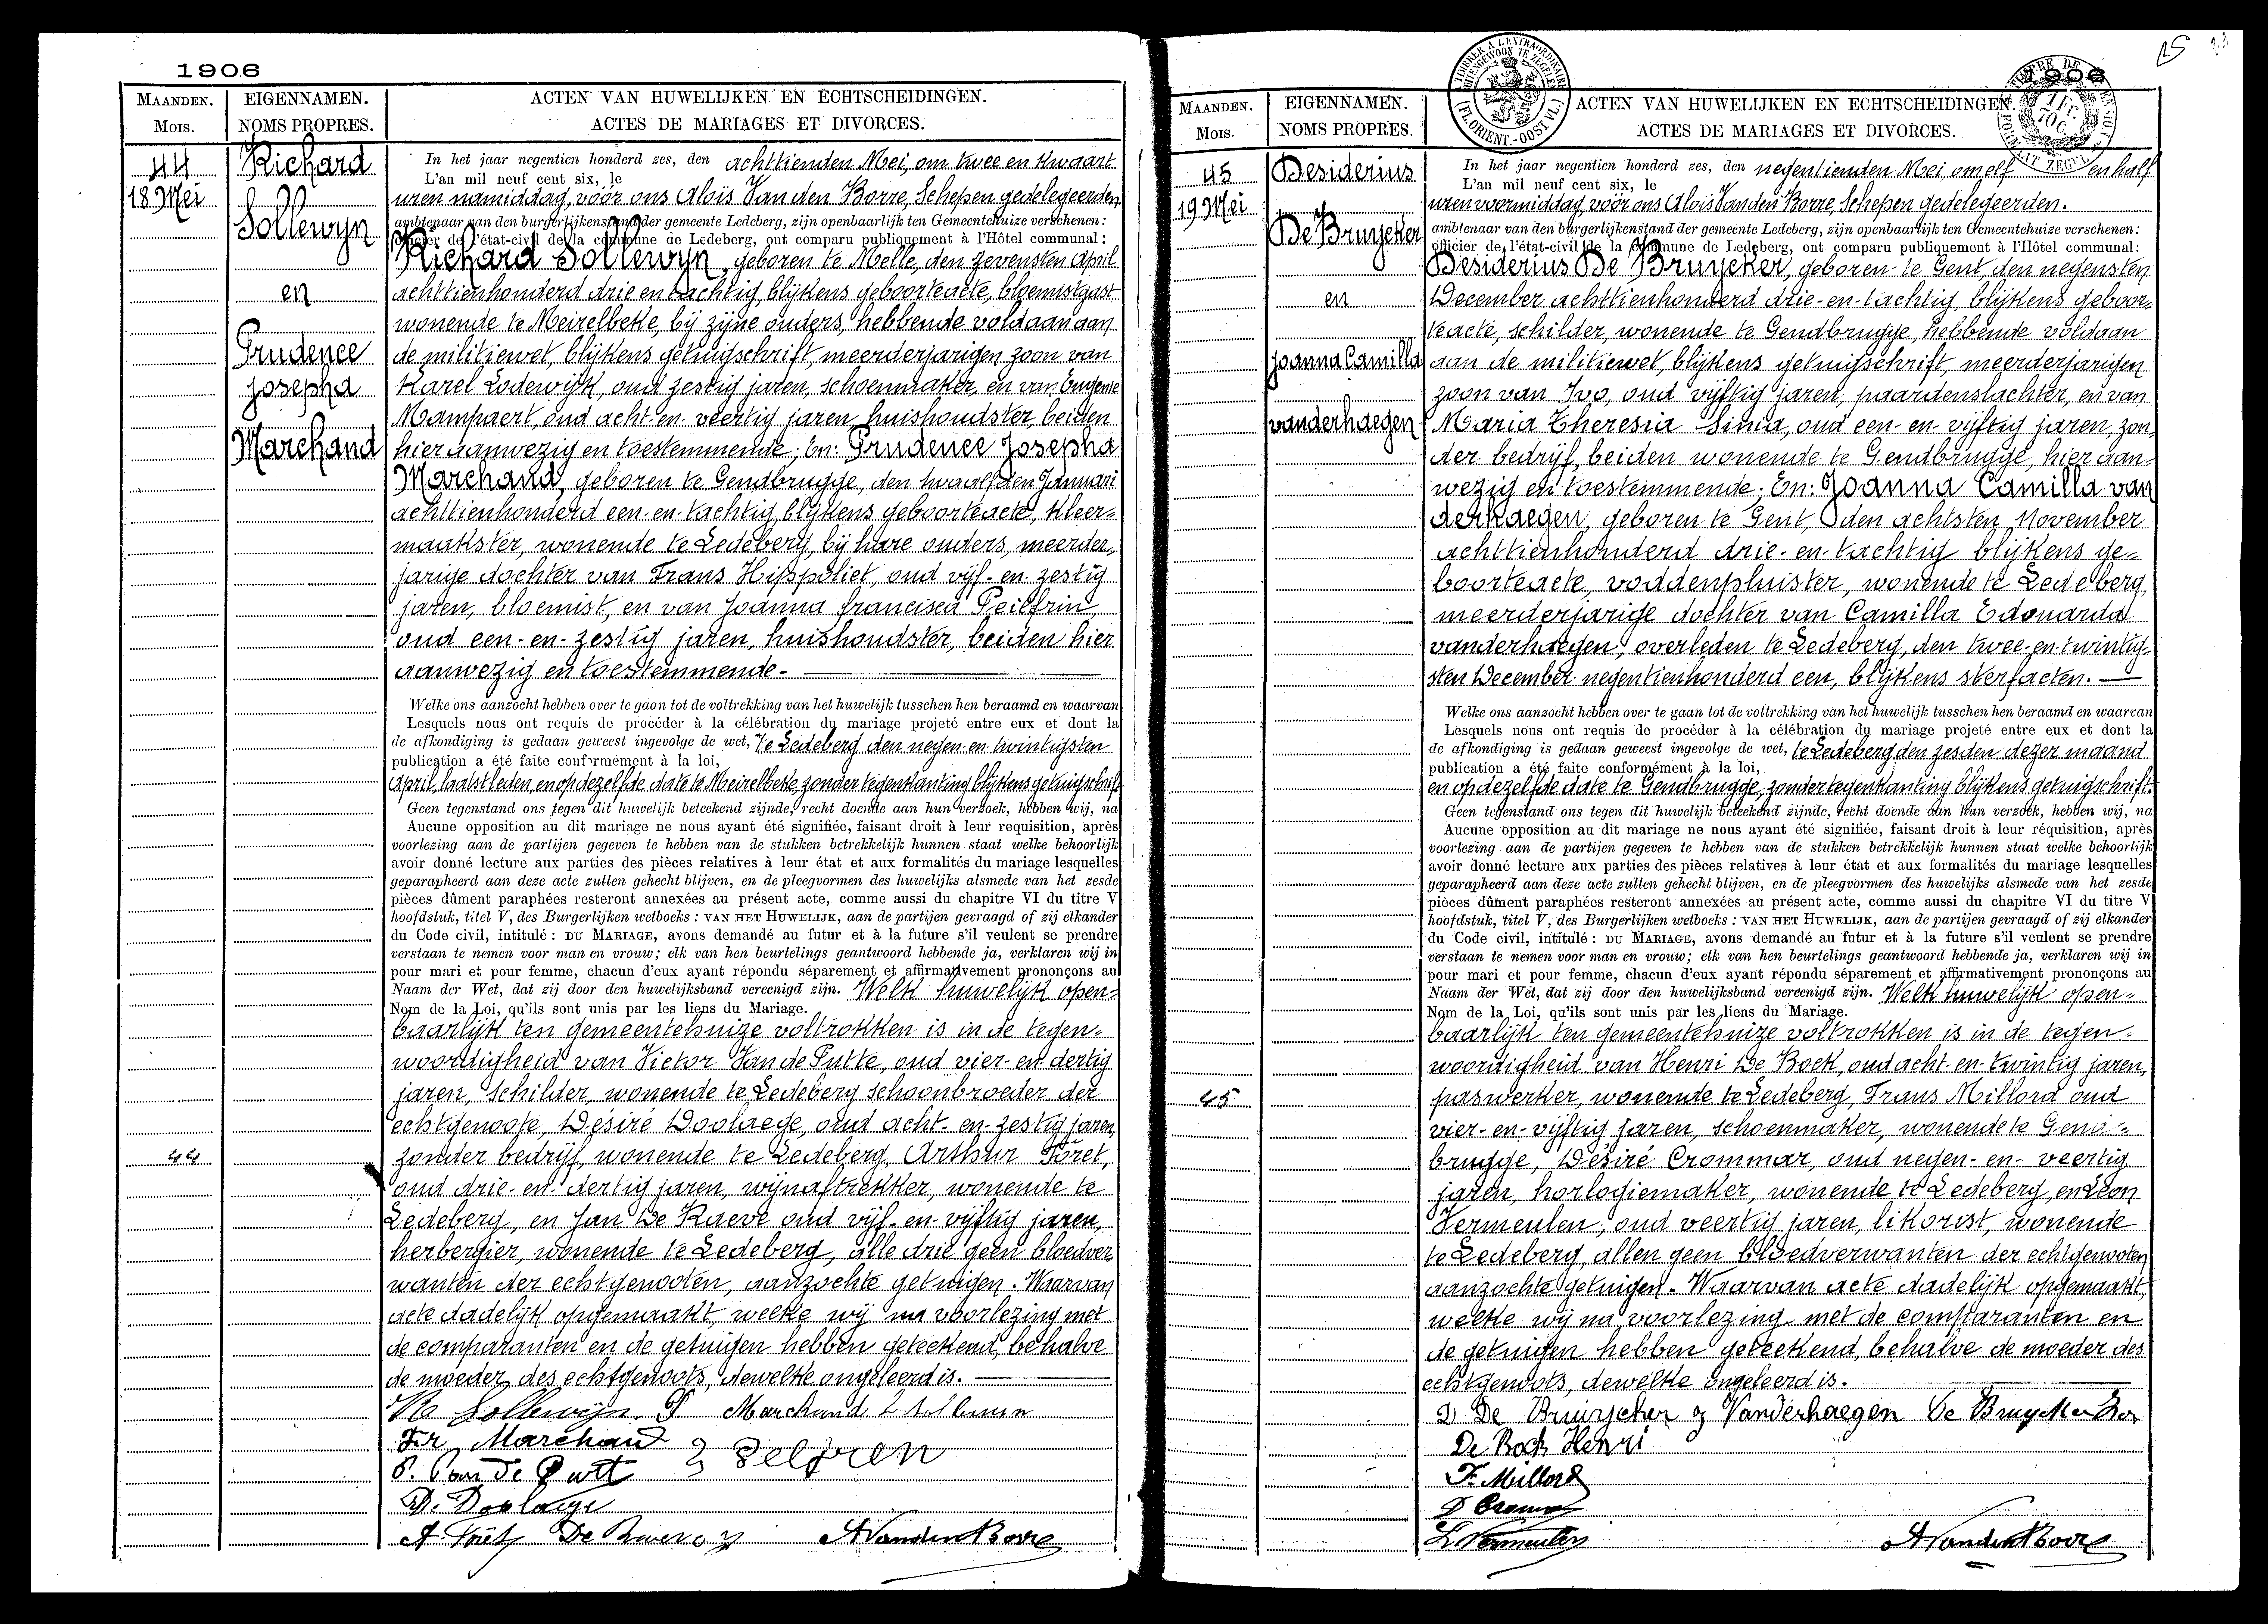 1906
MAANDEN.
Mois.
EIGENNAMEN.
NOMS PROPRES.
ACTEN VAN HUWELIJKEN EN ECHTSCHEIDINGEN.
ACTES DE MARIAGES ET DIVORCES.
44
18 Mei
Richard
Sollewyn
en
Prudence
Josepha
Marchand
In het jaar negentien honderd zes, den achttienden Mei, om twee en kwaart
L'an mil neuf cent six, le
uren namiddag, vóór ons Aloïs Van den Borre, Schepen gedelegeerden
ambtenaar van den burgerlijkenstand der gemeente Ledeberg, zijn openbaarlijk ten Gemeentehuize verschenen:
officier de l'état-civil de la commune de Ledeberg, ont comparu publiquement à l'Hôtel communal:
Richard Sollewyn, geboren te Melle, den zevensten April
achttienhonderd drie en tachtig, blijkens geboorteacte, bloemistgast
wonende te Meirelbeke, bij zijne ouders, hebbende voldaan aan
de militiewet, blijkens getuigschrift, meerderjarigen zoon van
Karel Lodewijk, oud zestig jaren, schoenmaker, en van Eugenie
Mampaert, oud acht-en-veertig jaren, huishoudster, beiden
hier aanwezig en toestemmende; En: Prudence Josepha
Marchand, geboren te Gendbrugge, den twaalfden Januari
achttienhonderd een-en-tachtig, blijkens geboorteacte, kleer-
maakster, wonende te Ledeberg, bij hare ouders, meerder-
jarige dochter van Frans Hippoliet, oud vijf-en-zestig
jaren, bloemist, en van Joanna francisca Peilfrin
oud een-en-zestig jaren, huishoudster, beiden hier
aanwezig en toestemmende.
Welke ons aanzocht hebben over te gaan tot de voltrekking van het huwelijk tusschen hen beraamd en waarvan
Lesquels nous ont requis de procéder à la célébration du mariage projeté entre eux et dont la
de afkondiging is gedaan geweest ingevolge de wet, te Ledeberg den negen-en-twintigsten
publication a été faite conformément à la loi,
April, laatstleden, en op dezelfde date te Meirelbeke, zonder tegenkanting blijkens getuigschrift
Geen tegenstand ons tegen dit huwelijk beteekend zijnde, recht doende aan hun verzoek, hebben wij, na
Aucune opposition au dit mariage ne nous ayant été signifiée, faisant droit à leur requisition, après
voorlezing aan de partijen gegeven te hebben van de stukken betrekkelijk hunnen staat welke behoorlijk
avoir donné lecture aux parties des pièces relatives à leur état et aux formalités du mariage lesquelles
geparapheerd aan deze acte zullen gehecht blijven, en de pleegvormen des huwelijks alsmede van het zesde
pièces dûment paraphées resteront annexées au présent acte, comme aussi du chapitre VI du titre V
hoofdstuk, titel V, des Burgerlijken wetboeks: VAN HET HUWELIJK, aan de partijen gevraagd of zij elkander
du Code civil, intitulé: DU MARIAGE, avons demandé au futur et à la future s'il veulent se prendre
verstaan te nemen voor man en vrouw; elk van hen beurtelings geantwoord hebbende ja, verklaren wij in
pour mari et pour femme, chacun d'eux ayant répondu séparement et affirmativement prononçons au
Naam der Wet, dat zij door den huwelijksband vereenigd zijn. Welk huwelijk open-
Nom de la Loi, qu'ils sont unis par les liens du Mariage.
baarlijk ten gemeentehuize voltrokken is in de tegen-
woordigheid van Victor Van de Putte, oud vier-en-dertig
jaren, schilder, wonende te Ledeberg schoonbroeder der
echtgenoote, Désiré Doolaege, oud acht-en-zestig jaren,
44
zonder bedrijf, wonende te Ledeberg, Arthur Foret,
oud drie-en-dertig jaren, wijnaftrekker, wonende te
Ledeberg, en Jan De Raeve oud vijf-en-vijftig jaren,
herbergier, wonende te Ledeberg, alle drie geen bloedver-
wanten der echtgenooten, aanzochte getuigen. Waarvan
acte dadelijk opgemaakt, welke wij na voorlezing met
de comparanten en de getuigen hebben geteekend, behalve
de moeder des echtgenoots, dewelke ongeleerd is.
Sollewijn P Marchand
Fr Marchand
Van de Putt
D. Doolaege
A Foret
A Vanden Borre
1906
MAANDEN.
Mois.
EIGENNAMEN.
NOMS PROPRES.
ACTEN VAN HUWELIJKEN EN ECHTSCHEIDINGEN.
ACTES DE MARIAGES ET DIVORCES.
TIMBRE A L'EXTRAORDINAIRE
BUITENGEWOON TE ZEGELEN
(FL. ORIENT. - OOST VL.)
45
19 Mei
Desiderius
De Bruycker
en
Joanna Camilla
vanderhaegen
In het jaar negentien honderd zes, den negentienden Mei om elf en half
L'an mil neuf cent six, le
uren voormiddag, vóór ons Aloïs Vanden Borre, Schepen gedelegeerden.
ambtenaar van den burgerlijkenstand der gemeente Ledeberg, zijn openbaarlijk ten Gemeentehuize verschenen:
officier de l'état-civil de la commune de Ledeberg, ont comparu publiquement à l'Hôtel communal:
Desiderius De Bruycker, geboren te Gent, den negensten
December achttienhonderd drie-en-tachtig, blijkens geboor-
teacte, schilder, wonende te Gendbrugge, hebbende voldaan
aan de militiewet, blijkens getuigschrift, meerderjarigen
zoon van Ivo, oud vijftig jaren, paardenslachter, en van
Maria Theresia Sinia, oud een-en-vijftig jaren, zon-
der bedrijf, beiden wonende te Gendbrugge, hier aan-
wezig en toestemmende; En: Joanna Camilla van
derhaegen, geboren te Gent, den achtsten November
achttienhonderd drie-en-tachtig blijkens ge-
boorteacte, voddenpluister, wonende te Ledeberg,
meerderjarige dochter van Camilla Edouarda
vanderhaegen, overleden te Ledeberg, den twee-en-twintig-
sten December negentienhonderd een, blijkens sterfacten.
Welke ons aanzocht hebben over te gaan tot de voltrekking van het huwelijk tusschen hen beraamd en waarvan
Lesquels nous ont requis de procéder à la célébration du mariage projeté entre eux et dont la
de afkondiging is gedaan geweest ingevolge de wet, te Ledeberg den zesden dezer maand
publication a été faite conformément à la loi,
en op dezelfde date te Gendbrugge, zonder tegenkanting blijkens getuigschrift.
Geen tegenstand ons tegen dit huwelijk beteekend zijnde, recht doende aan hun verzoek, hebben wij, na
Aucune opposition au dit mariage ne nous ayant été signifiée, faisant droit à leur réquisition, après
voorlezing aan de partijen gegeven te hebben van de stukken betrekkelijk hunnen staat welke behoorlijk
avoir donné lecture aux parties des pièces relatives à leur état et aux formalités du mariage lesquelles
geparapheerd aan deze acte zullen gehecht blijven, en de pleegvormen des huwelijks alsmede van het zesde
pièces dûment paraphées resteront annexées au présent acte, comme aussi du chapitre VI du titre V
hoofdstuk, titel V, des Burgerlijken wetboeks: VAN HET HUWELIJK, aan de partijen gevraagd of zij elkander
du Code civil, intitulé: DU MARIAGE, avons demandé au futur et à la future s'il veulent se prendre
verstaan te nemen voor man en vrouw; elk van hen beurtelings geantwoord hebbende ja, verklaren wij in
pour mari et pour femme, chacun d'eux ayant répondu séparement et affirmativement prononçons au
Naam der Wet, dat zij door den huwelijksband vereenigd zijn. Welk huwelijk open-
Nom de la Loi, qu'ils sont unis par les liens du Mariage.
baarlijk ten gemeentehuize voltrokken is in de tegen-
woordigheid van Henri De Bock, oud acht-en-twintig jaren,
45
paswerker, wonende te Ledeberg, Frans Millord oud
vier-en-vijftig jaren, schoenmaker, wonende te Gend-
brugge, Désiré Crommar, oud negen-en-veertig
jaren, horlogiemaker, wonende te Ledeberg, en Leon
Vermeulen, oud veertig jaren, likorist, wonende
te Ledeberg, allen geen bloedverwanten der echtgenooten
aanzochte getuigen. Waarvan acte dadelijk opgemaakt,
welke wij na voorlezing met de comparanten en
de getuigen hebben geteekend, behalve de moeder des
echtgenoots, dewelke ongeleerd is.
D De Bruyscher J Vanderhaegen De Bruycker
De Bock Henri
F. Millord
L Vermeulen
A Vanden Borre